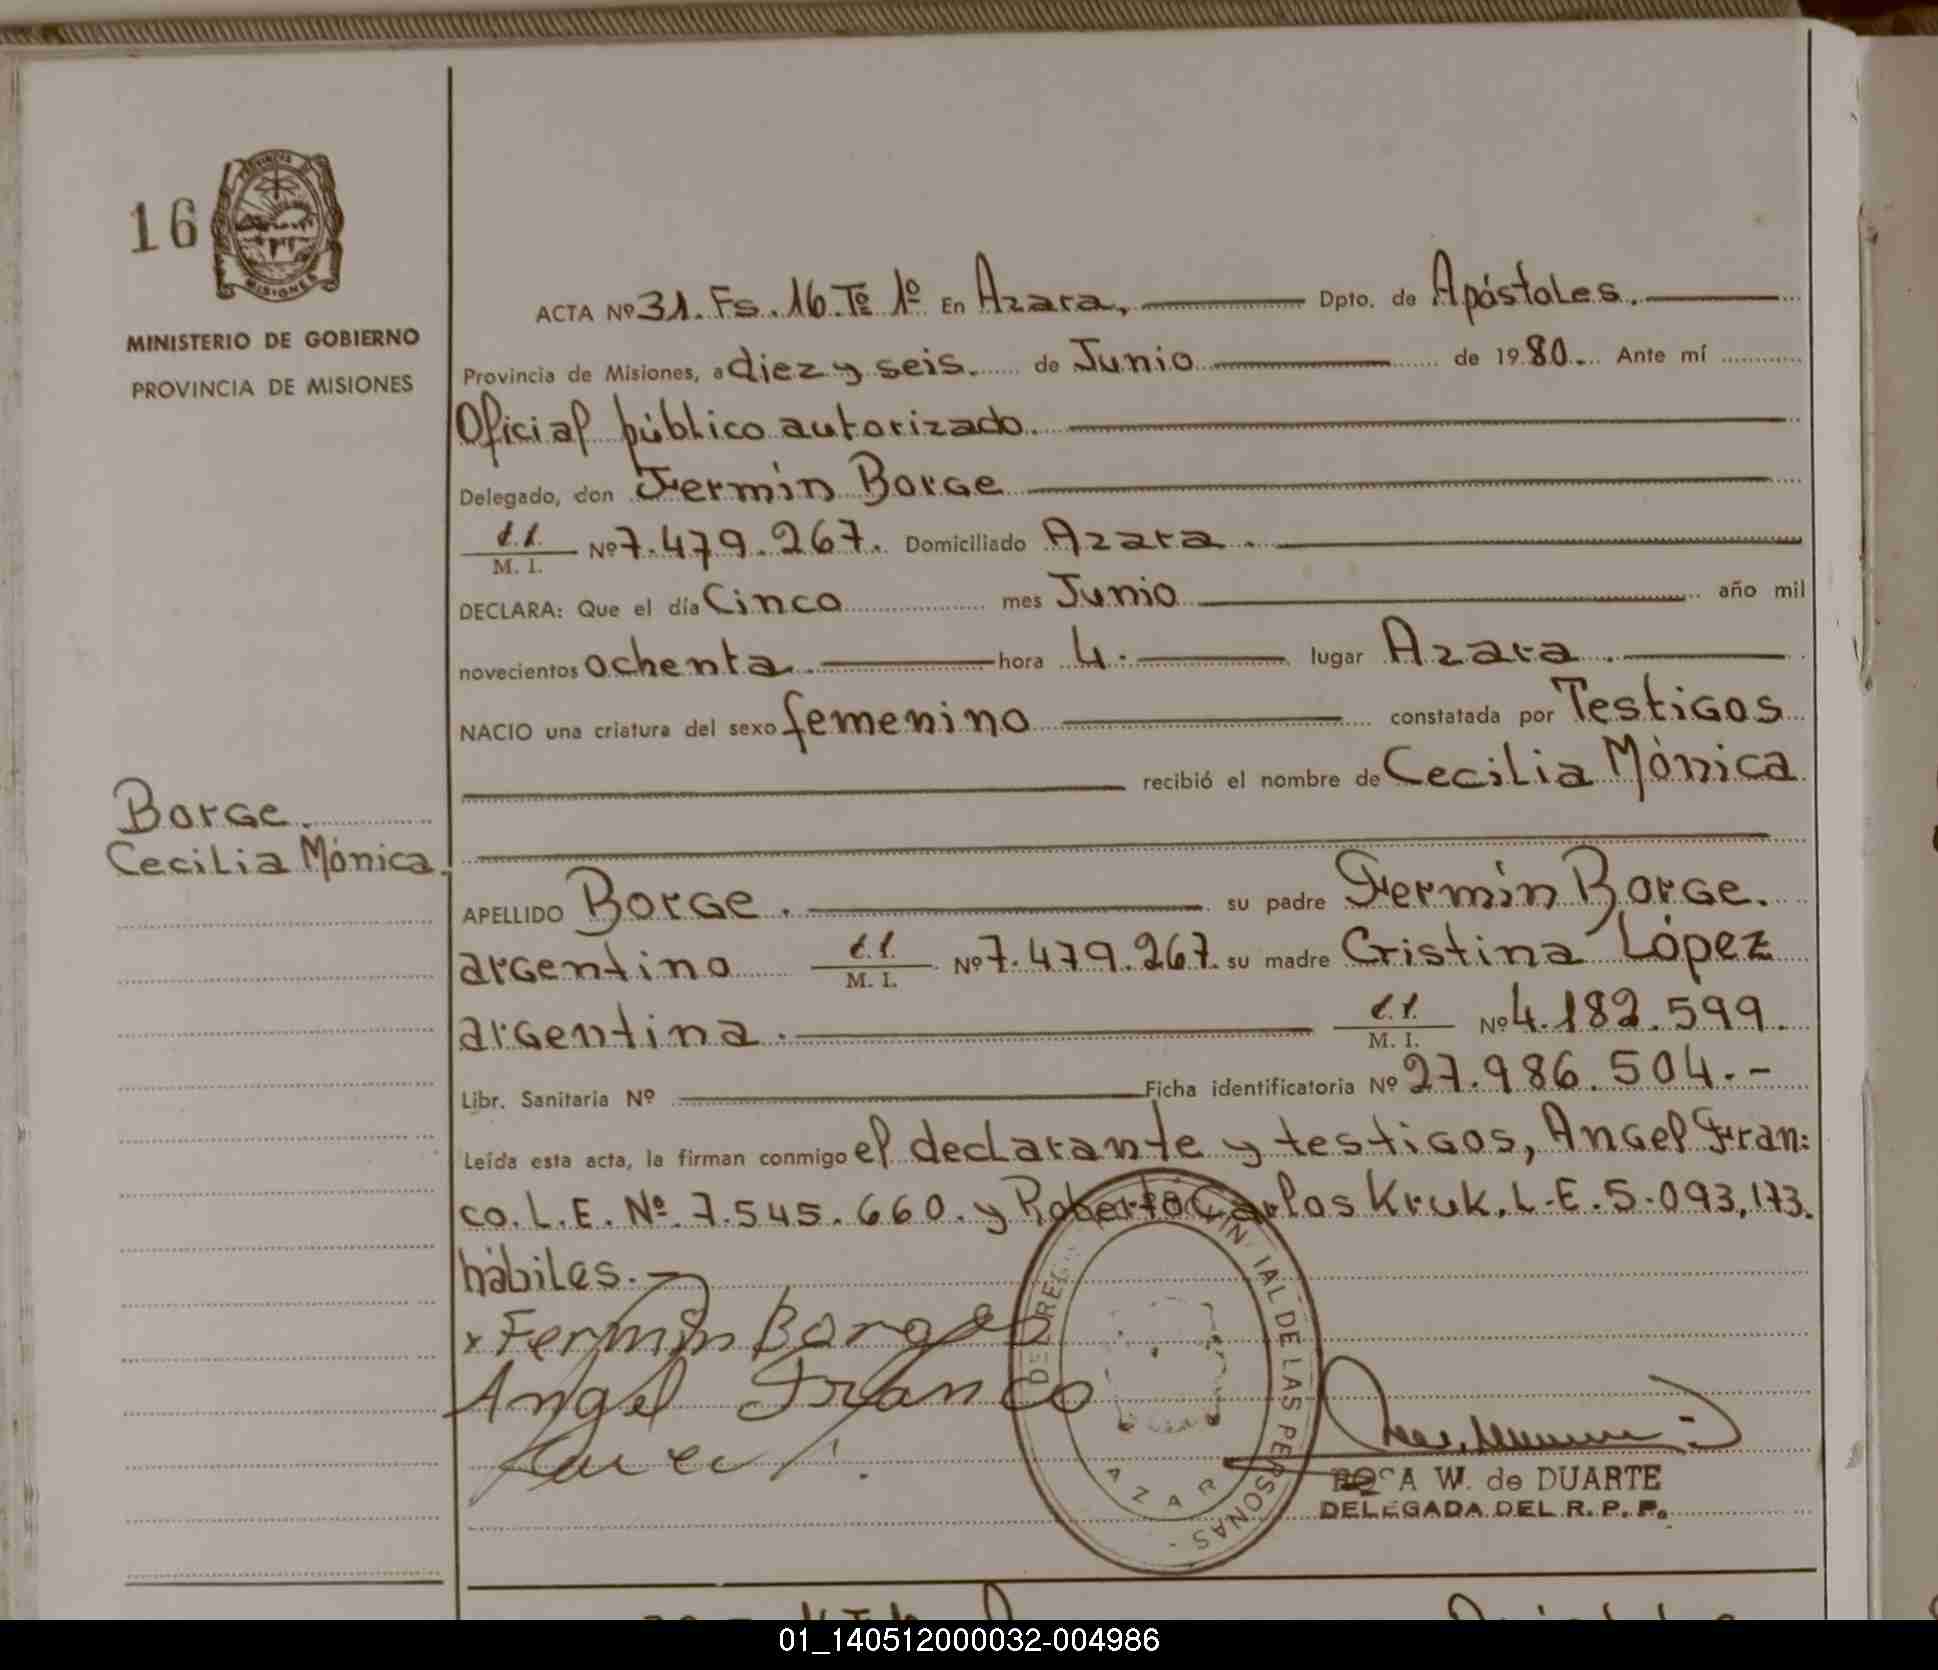 16
PROVINCIA DE
MISIONES
MINISTERIO DE GOBIERNO
PROVINCIA DE MISIONES
ACTA Nº 31. Fs. 16. Tº 1º En Azara, Dpto. de Apóstoles.
Provincia de Misiones, a diez y seis. de Junio de 1980. Ante mí
Oficial público autorizado.
Delegado, don Fermín Borge
M. I. Nº 7.479.267. Domiciliado Azara.
DECLARA: Que el día Cinco mes Junio año mil
novecientos ochenta. hora 4. lugar Azara.
NACIO una criatura del sexo femenino constatada por Testigos
recibió el nombre de Cecilia Mónica
Borge.
Cecilia Mónica.
APELLIDO Borge. su padre Fermín Borge.
argentino M. I. Nº 7.479.267. su madre Cristina López
argentina. M. I. Nº 4.182.599.
Libr. Sanitaria Nº Ficha identificatoria Nº 27.986.504.-
Leída esta acta, la firman conmigo el declarante y testigos, Angel Fran:
co. L. E. Nº 7.545.660. y Roberto Carlos Kruk. L.E. 5.093,173.
hábiles.
x Fermín Borges
Angel Franco
DE LAS PERSONAS
AZAR
W. de DUARTE
DELEGADA DEL R. P. P.
01_140512000032-004986